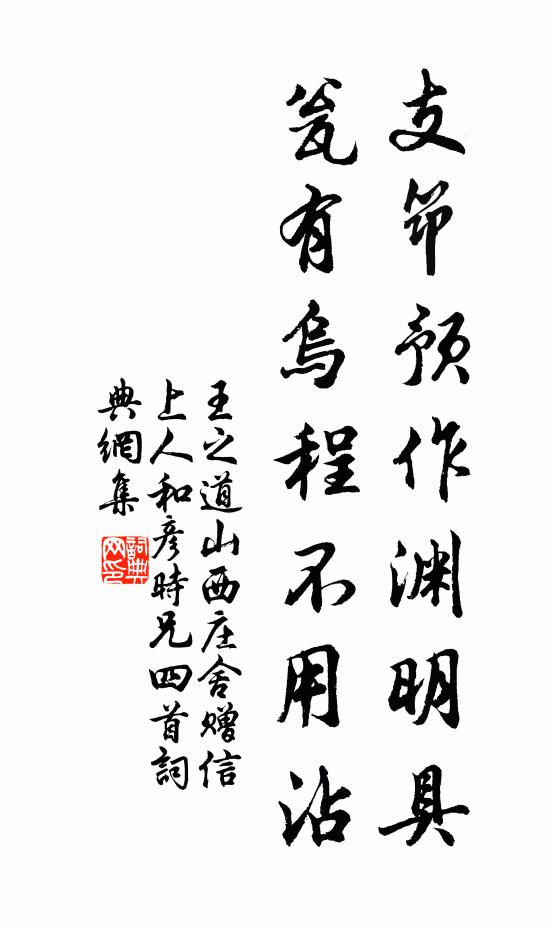 支笻預作渊明具
瓮有烏程不用沾
王之道山西庄舍贈信
上人和彦時兄四首詞
典網集
詞典网印